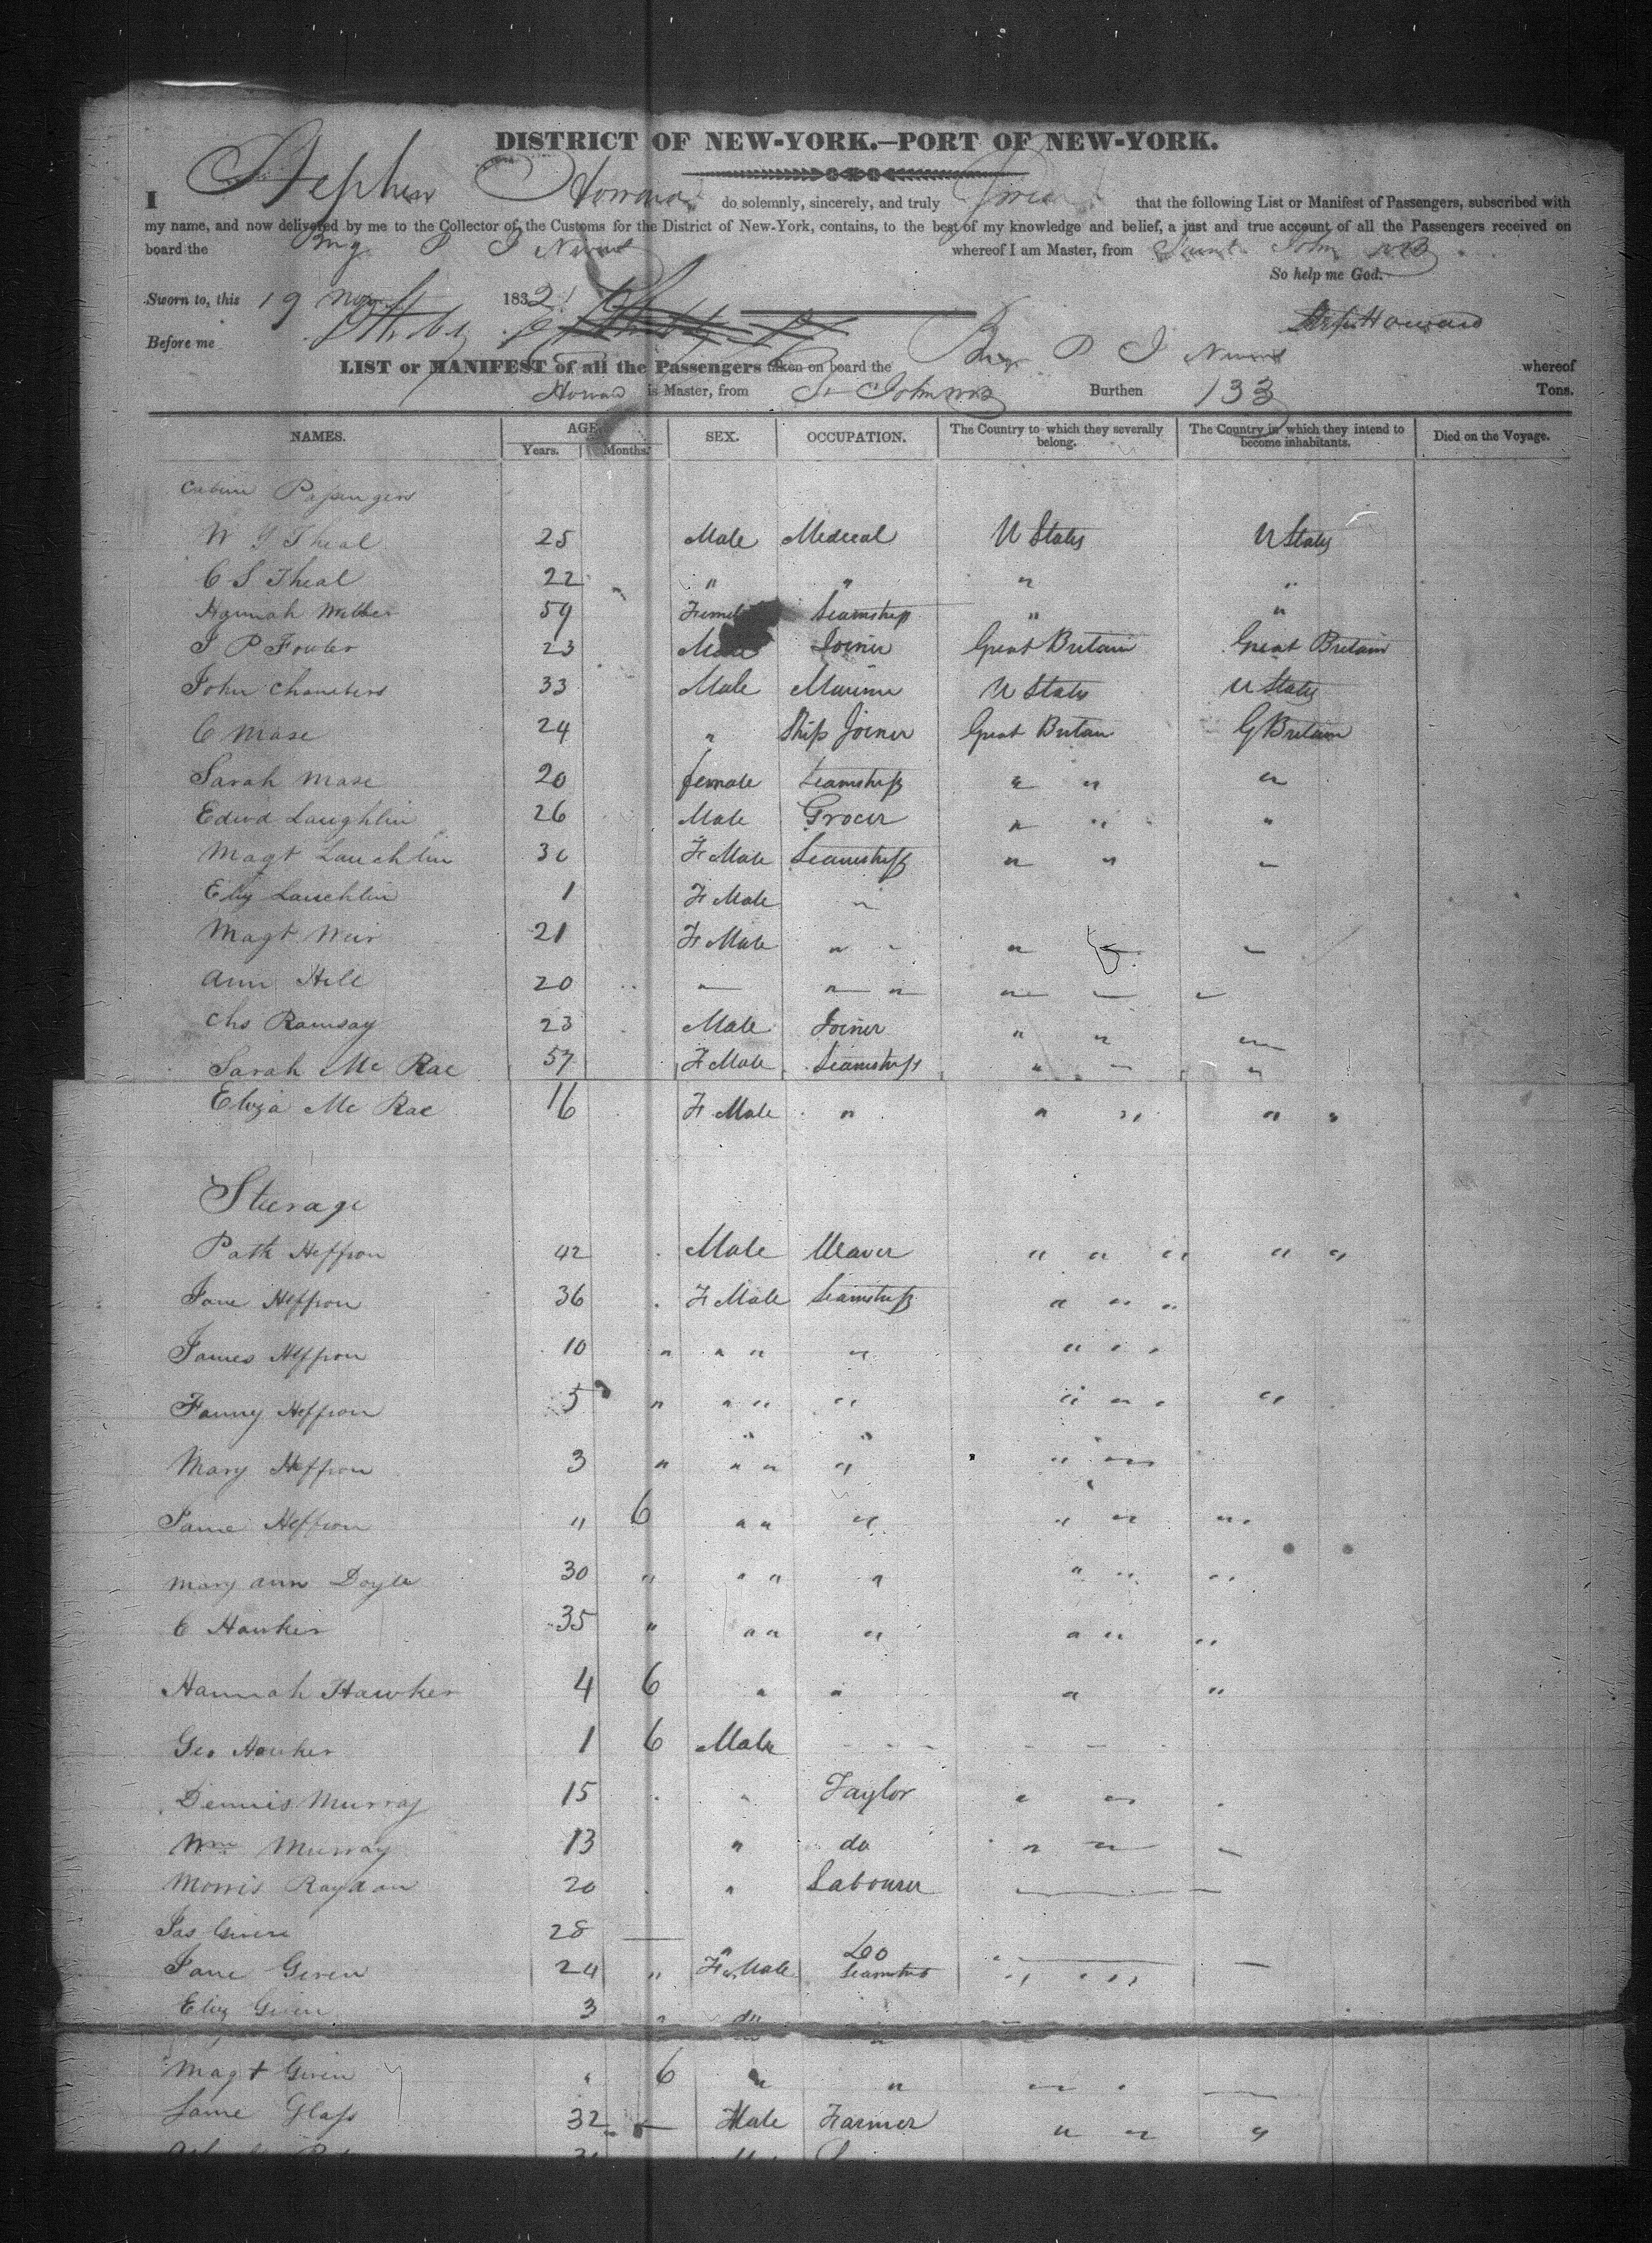 DISTRICT OF NEW-YORK.—PORT OF NEW-YORK.
I Stephen Howard do solemnly, sincerely, and truly Swear that the following List or Manifest of Passengers, subscribed with
my name, and now delivered by me to the Collector of the Customs for the District of New-York, contains, to the best of my knowledge and belief, a just and true account of all the Passengers received on
board the Brig P I whereof I am Master, from Saint John NB
So help me God.
Sworn to, this 19 Nov 1832
Before me
Howard
LIST or MANIFEST of all the Passengers taken on board the Brig P I whereof
Howard is Master, from St John NB Burthen 133 Tons.
NAMES. AGE. SEX. OCCUPATION. The Country to which they severally belong. The Country in which they intend to become inhabitants. Died on the Voyage.
Years. Months.
Cabin Passengers
W Theal 25 Male Medical U States U States
C S Theal 22 " " " "
Hannah 59 Female Seamstress " "
J P Fowler 23 Male Joiner Great Britain Great Britain
John Chambers 33 Male Marine U States U States
C Mase 24 " Ship Joiner Great Britain G Britain
Sarah Mase 20 female Seamstress " " "
Edwd Laughlin 26 Male Grocer " " "
Magt Lauchlin 30 FMale Seamstress " " "
Eliz Lauchlin 1 FMale "
Magt Weir 21 FMale " " " "
Ann Hill 20 " " " " " "
Chs Ramsay 23 Male Joiner " " "
Sarah Mc Rae 57 FMale Seamstress " " "
Eliza Mc Rae 16 FMale " " " " "
Steerage
Patk Heffron 42 Male Weaver " " " " "
Jane Heffron 36 FMale Seamstress " " "
James Heffron 10 " " " " " " "
Fanny Heffron 5 " " " " " " " "
Mary Heffron 3 " " " " " "
Jane Heffron " 6 " " " " " "
Mary Ann Doyle 30 " " " " " " "
C Hawker 35 " " " " " " "
Hannah Hawker 4 6 " " " "
Geo Hawker 1 6 Male
Dennis Murray 15 " Taylor " "
Wm Murray 13 " do " "
Morris 20 " Labourer
Jas Given 28 " Do
Jane Given 24 " FMale Seamstress " "
Eliz Given 3 " do "
Magt Given " 6 " " "
Glass 32 Male Farmer " " "